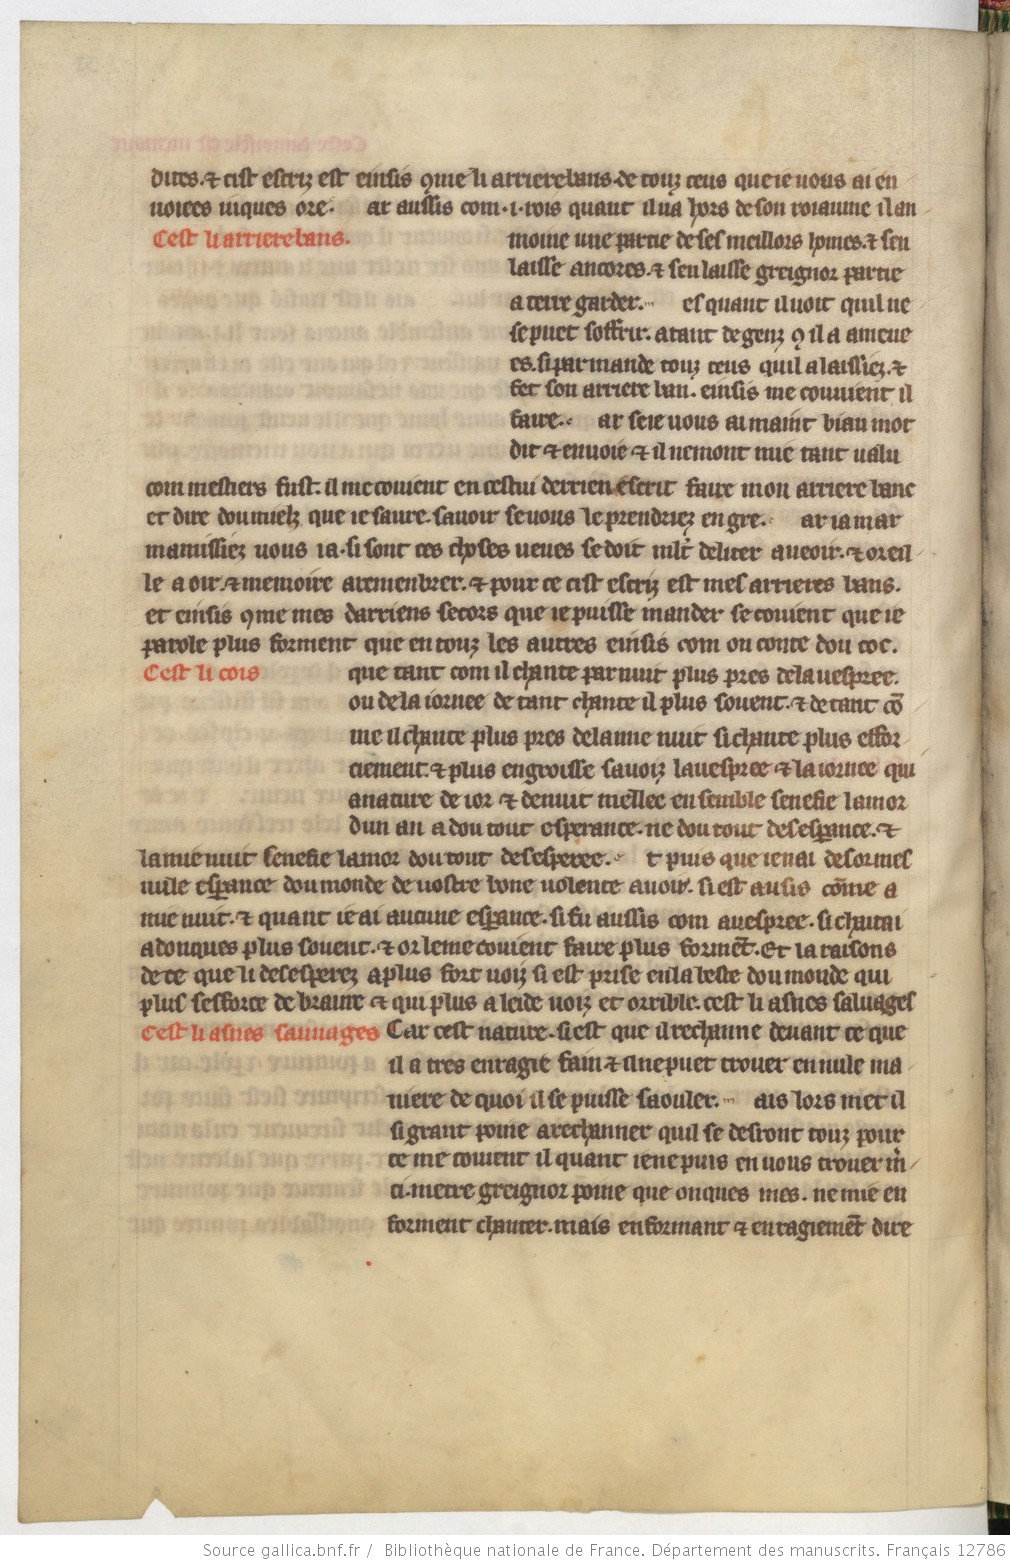 dites. ⁊ cist escriz est einsis ꝯme li arrierebans. de touz ceus que ie uous ai en
uoiees iuques ore. ar aussis com .i. rois quant il ua hors de son roiaume il an
Cest li arrierebans.
moine une partie de ses meillors homes. ⁊ sen
laisse ancores. ⁊ sen laisse greignor partie
a terre garder. es quant il uoit quil ne
se puet soffrir. a tant de genz ꝯ il a amene
es. si par mande touz ceus quil a laissiez. ⁊
fet son arriere ban. einsis me conuient il
faire. ar se ie uous ai maint biau mot
dit ⁊ enuoie ⁊ il nemont mie tant ualu
com mestiers fust. il me couient en cestui derrien escrit faire mon arriere banc
et dire dou mielz que ie saure. sauoir se uous le prendriez en gre. ar ia mar
mamissiez uous ia. si sont ces choses ueues se doit mlt̃ deliter a ueoir. ⁊ oreil
le a oir. ⁊ memoire a remenbrer. ⁊ pour ce cist escriz est mes arrieres bans.
et einsis ꝯme mes darriens secors que ie puisse mander se couient que ie
parole plus forment que en touz les autres einsis com on conte dou coc.
Cest li cois
que tant com il chante par nuit plus pres de la uespree.
ou de la iornee de tant chante il plus souent. ⁊ de tant cō
me il chante plus pres de la mie nuit si chante plus effor
ciement. ⁊ plus engroisse sa uoiz la uespree ⁊ la iornee qui
a nature de ior ⁊ de nuit mellee ensemble senefie lamor
dun an a dou tout esperance. ne dou tout desesꝑance. ⁊
la mie nuit senefie lamor dou tout desesperee. t puis que ie nai desormes
nule esꝑance dou monde de uostre bone uolente auoir. si est ausis cōme a
mie nuit. ⁊ quant ie ai aucune esꝑance. si fu aussis com a uespree. si chantai
adonques plus souent. ⁊ or le me couient faire plus formēt. Et la raisons
de ce que li desesperez a plus fort uoiz si est prise en la beste dou monde qui
plus sesforce de braire ⁊ qui plus a leide uoiz et orrible. cest li asnes saluages
Cest li asnes sauuages Car cest nature. si est que il rechanne deuant ce que
il a tres enragie fain ⁊ il ne puet trouer en nule ma
niere de quoi il se puisse saouler. ais lors met il
si grant poine a rechanner quil se desront touz pour
ce me couient il quant ie ne puis en uous trouer m̃
ci. metre greignor poine que onques mes. ne mie en
forment chanter. mais en formant ⁊ enragiemēt dire
Source gallica.bnf.fr / Bibliothèque nationale de France. Département des manuscrits. Français 12786